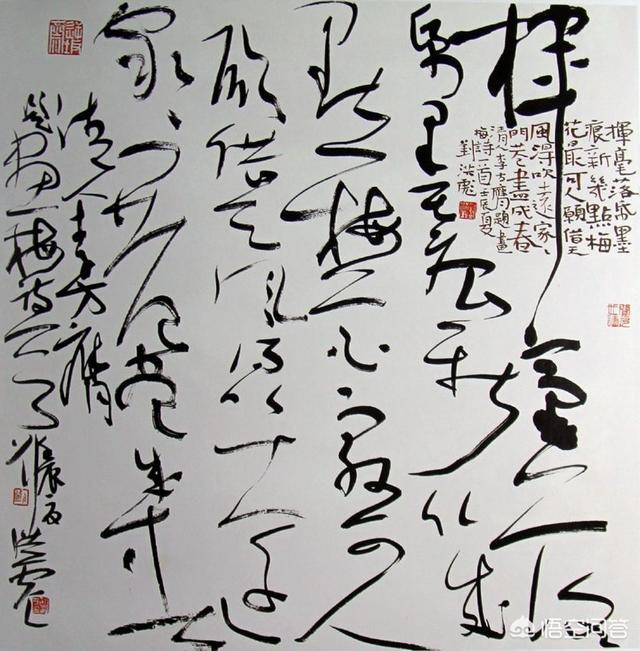 揮毫落
紙墨痕新幾
點梅花最可人
願借天風得吹遠
家々門巷盡成春
清人李方膺
題畫梅詩一首壬辰夏洪彪
揮毫落紙墨
痕新幾點梅
花最可人願借天
風得吹遠家々
門巷盡成春
清人李方膺題畫
梅詩一首壬辰夏
劉洪彪
悟空问答